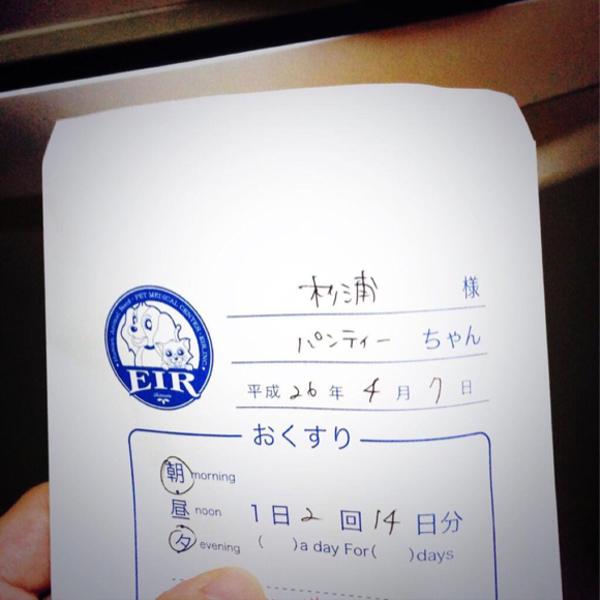 杉浦 様
パンティー ちゃん
平成 26 年 4 月 7 日
PET MEDICAL CENTER・EIR,INC.
EIR
おくすり
朝 morning
昼 noon
夕 evening
1日 2 回 14 日分
( )a day For( )days